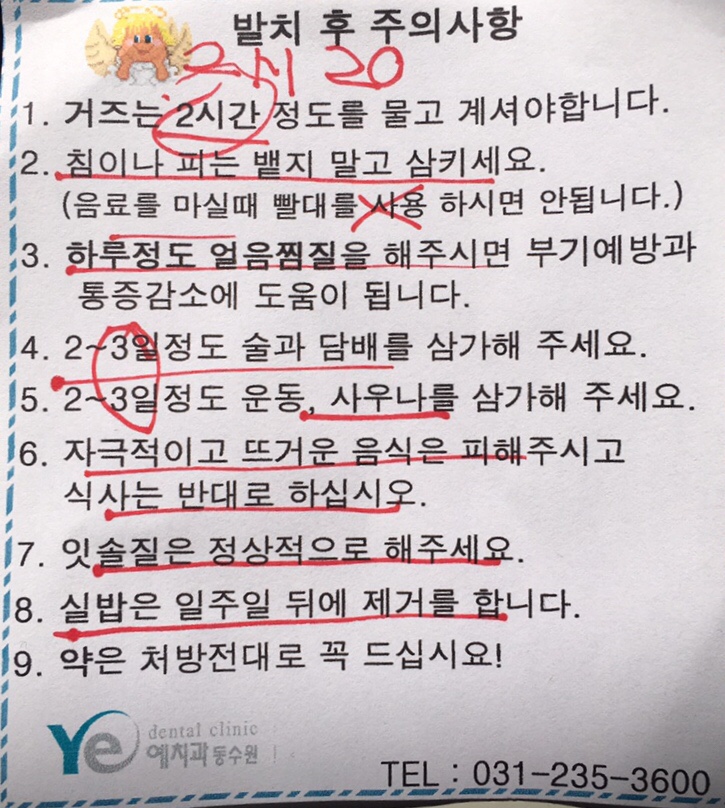 발치 후 주의사항
2시 20
1. 거즈는 2시간 정도를 물고 계셔야합니다.
2. 침이나 피는 뱉지 말고 삼키세요.
(음료를 마실때 빨대를 사용 하시면 안됩니다.)
3. 하루정도 얼음찜질을 해주시면 부기예방과
통증감소에 도움이 됩니다.
4. 2~3일정도 술과 담배를 삼가해 주세요.
5. 2~3일정도 운동, 사우나를 삼가해 주세요.
6. 자극적이고 뜨거운 음식은 피해주시고
식사는 반대로 하십시오.
7. 잇솔질은 정상적으로 해주세요.
8. 실밥은 일주일 뒤에 제거를 합니다.
9. 약은 처방전대로 꼭 드십시요!
Ye dental clinic
예치과 동수원
TEL : 031-235-3600